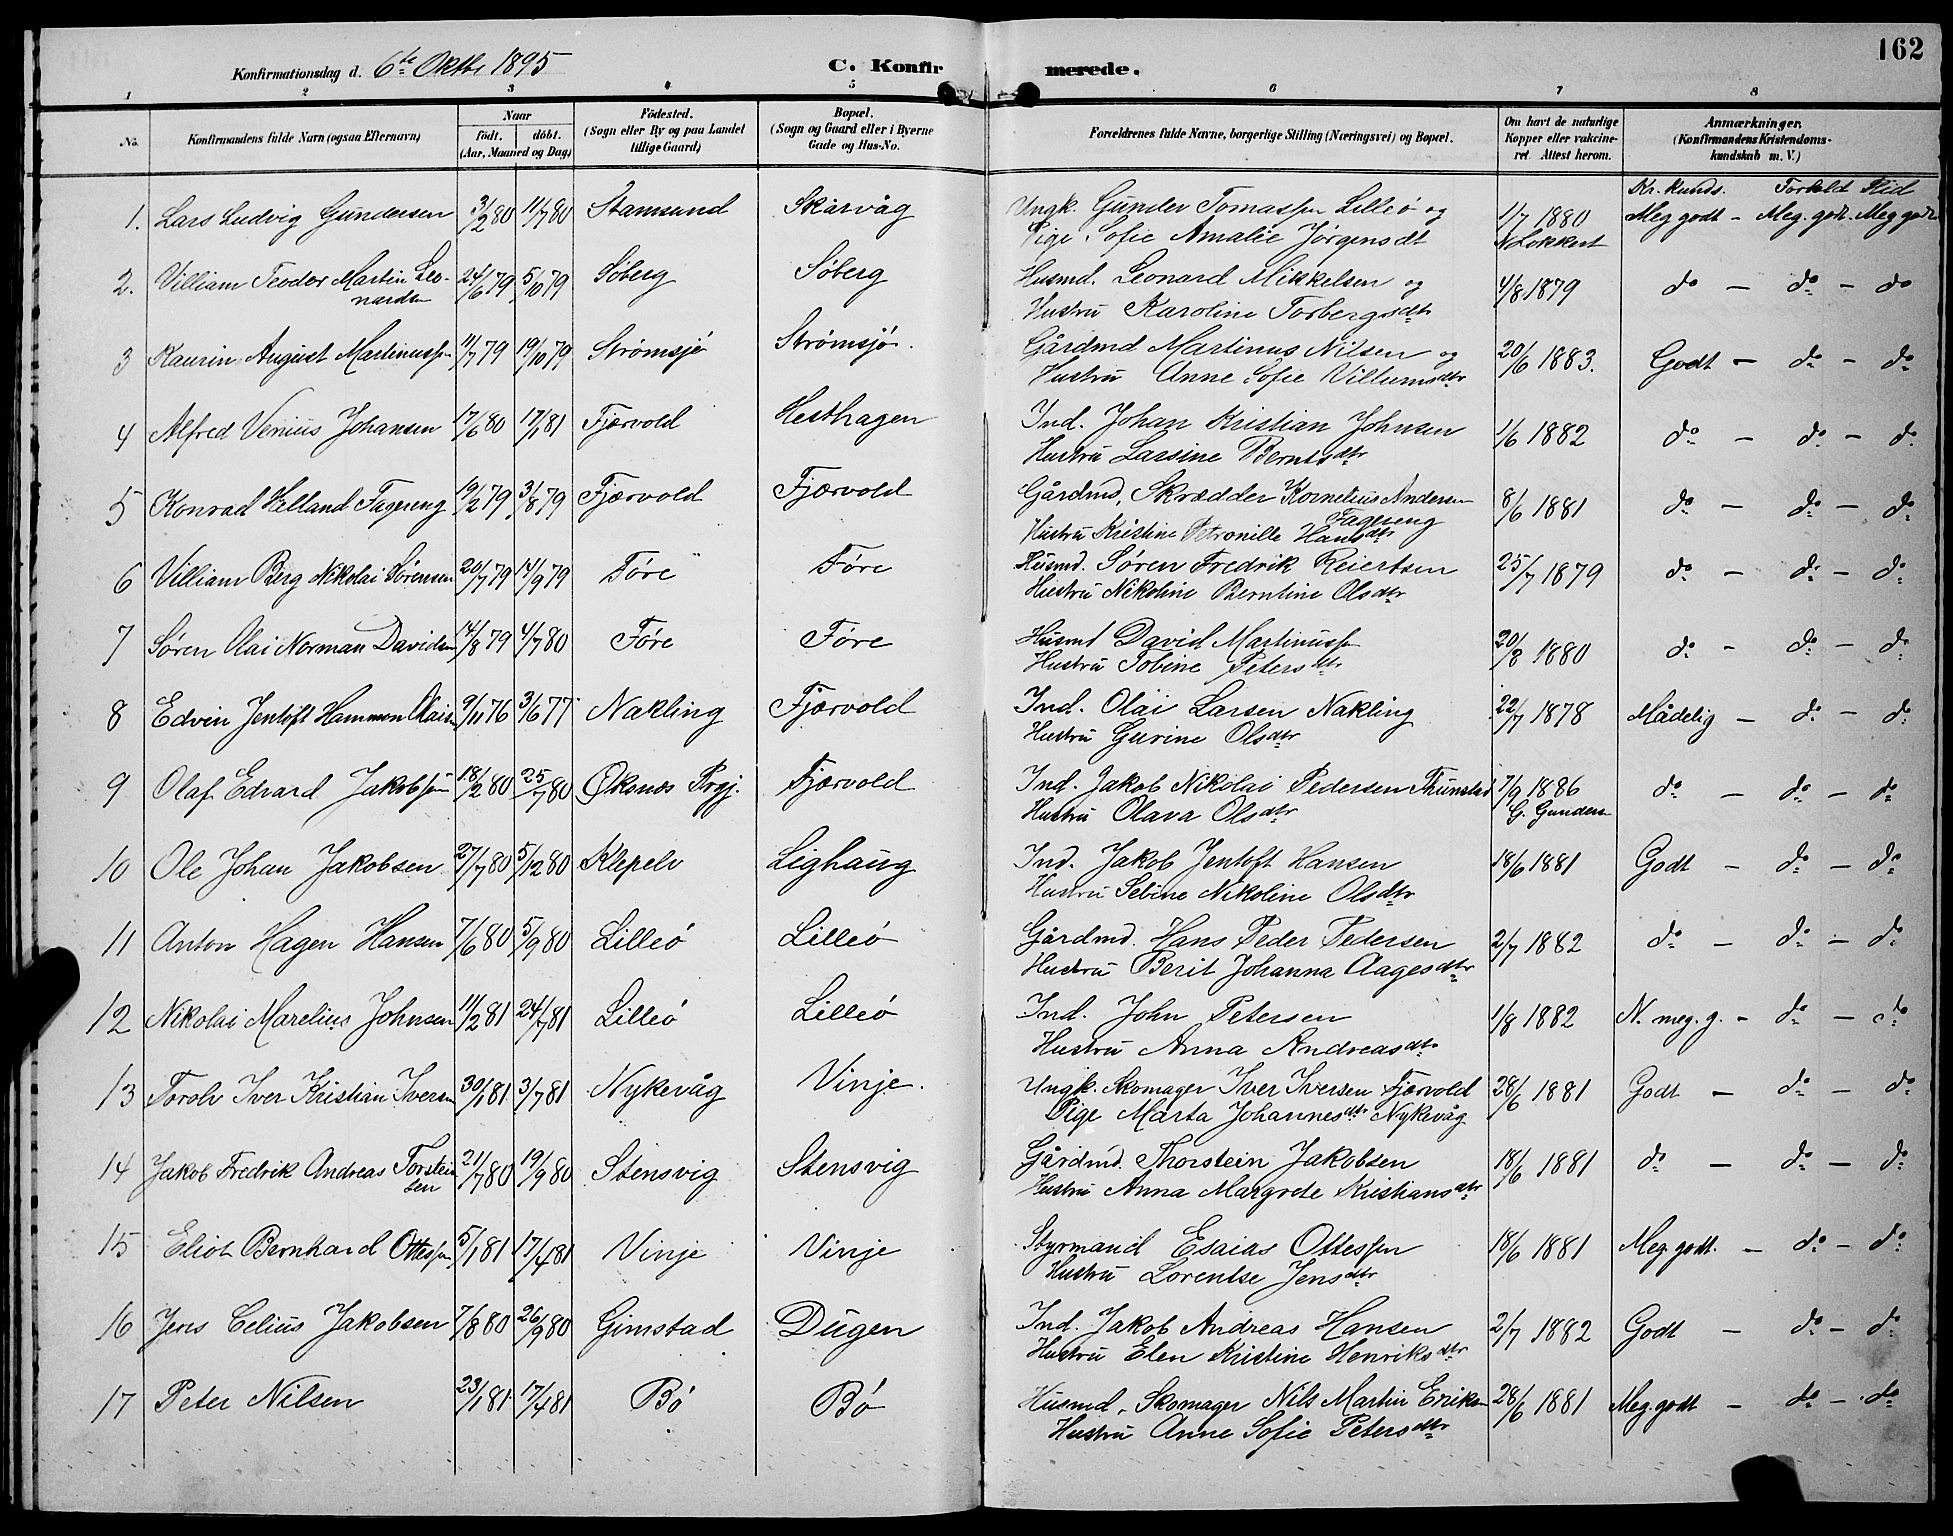 162
Konfirmationsdag d. 6te Oktbr 1895 C. Konfirmerede.
1 2 3 4 5 6 7 8
No. Konfirmandens fulde Navn (ogsaa Efternavn) Naar födt. döbt. (Aar, Maaned og Dag) Födested. (Sogn eller By og paa Landet tillige Gaard) Bopæl. (Sogn og Gaard eller i Byerne Gade og Hus-No. Forældrenes fulde Navne, borgerlige Stilling (Næringsvei) og Bopæl. Om havt de naturlige Kopper eller vakcineret Attest herom. Anmærkninger, (Konfirmandens Kristendomskundskab m. V.)
Kr. kunds. Forhold Flid
1. Lars Ludvig Gundersen 3/2 80 11/7 80 Stamsund Skårvåg Ungk. Gunder Tomassen Lilleö og 1/7 1880 Meg godt – Meg. godt. Meg godt
Pige Sofie Amalie Jörgensdt N Lokkert
2. Villiam Teodor Martin Leo- 24/6 79 5/10 79 Söberg Söberg Husmd. Leonard Mikkelsen og 4/8 1879 do – do – do
nardsen Hustru Karoline Torbergsdtr
3 Kaurin August Martinussen 11/7 79 19/10 79 Strömsjö Strömsjö. Gårdmd Martinus Nilsen og 20/6 1883. Godt – do – do
Hustru Anne Sofie Villumsdtr
4 Alfred Venius Johansen 17/6 80 17/1 81 Fjærvold Hesthagen Ind. Johan Kristian Johnsen 1/6 1882 do – do – do
Hustru Larsine Berntsdtr
5 Konrad Hilland Fagereng 19/2 79 3/8 79 Fjærvold Fjærvold Gårdmd, Skrædder Kornelius Andersen 8/6 1881 do – do – do
Fagereng
Hustru Kristine Petronille Hansdtr
6 Villiam Berg Nikolai Sörensen 20/7 79 14/9 79 Före Före Husmd. Sören Fredrik Reiertsen 25/7 1879 do – do – do
Hustru Nikoline Berntine Olsdtr
7 Sören Olai Norman Davidsen 14/8 79 4/7 80 Före Före Husmd David Martinussen 20/8 1880 do – do – do
Hustru Tobine Petersdtr
8 Edvin Jentoft Hammon Olaisen 9/11 76 3/6 77 Nakling Fjærvold Ind. Olai Larsen Nakling 22/7 1878 Mådelig – do – do
Hustru Gurine Olsdtr
9 Olaf Edvard Jakobsen 18/2 80 25/7 80 Öksnæs Prgj. Fjærvold Ind. Jakob Nikolai Pedersen Thunstad 7/9 1886 do – do – do
Hustru Olava Olsdtr G. Gundersen
10 Ole Johan Jakobsen 27/7 80 5/12 80 Klepelv Lighaug Ind. Jakob Jentoft Hansen 18/6 1881 Godt – do – do
Hustru Sebine Nikoline Olsdtr
11 Anton Hagen Hansen 7/6 80 5/9 80 Lilleö Lilleö Gårdmd. Hans Peder Pedersen 2/7 1882 do – do – do
Hustru Berit Johanna Aagesdtr
12 Nikolai Marelius Johnsen 11/2 81 24/7 81 Lilleö Lilleö Ind. John Petersen 1/8 1882 N. meg. g. – do – do
Hustru Anna Andreasdtr
13 Torolv Iver Kristian Iversen 30/1 81 3/7 81 Nykevåg Vinje. Ungk. Skomager Iver Iversen Fjærvold 28/6 1881 Godt – do – do
Pige Marta Johannesdtr Nykevåg
14 Jakob Fredrik Andreas Torstein 21/7 80 19/9 80 Stensvig Stensvig Gårdmd. Thorstein Jakobsen 18/6 1881 do – do – do
sen Hustru Anna Margrete Kristiansdtr
15 Eliot Bernhard Ottessen 5/1 81 17/4 81 Vinje Vinje Styrmand Esaias Ottessen 18/6 1881 Meg godt. – do – do
Hustru Lorentse Jensdtr
16 Jens Celius Jakobsen 7/8 80 26/9 80 Gimstad Dugen Ind. Jakob Andreas Hansen 2/7 1882 Godt – do – do
Hustru Elen Kristine Henriksdtr
17 Peter Nilsen 23/1 81 17/4 81 Bö Bö Husmd, Skomager Nils Martin Eriksen 28/6 1881 Meg. godt – do – do
Hustru Anne Sofie Petersdtr